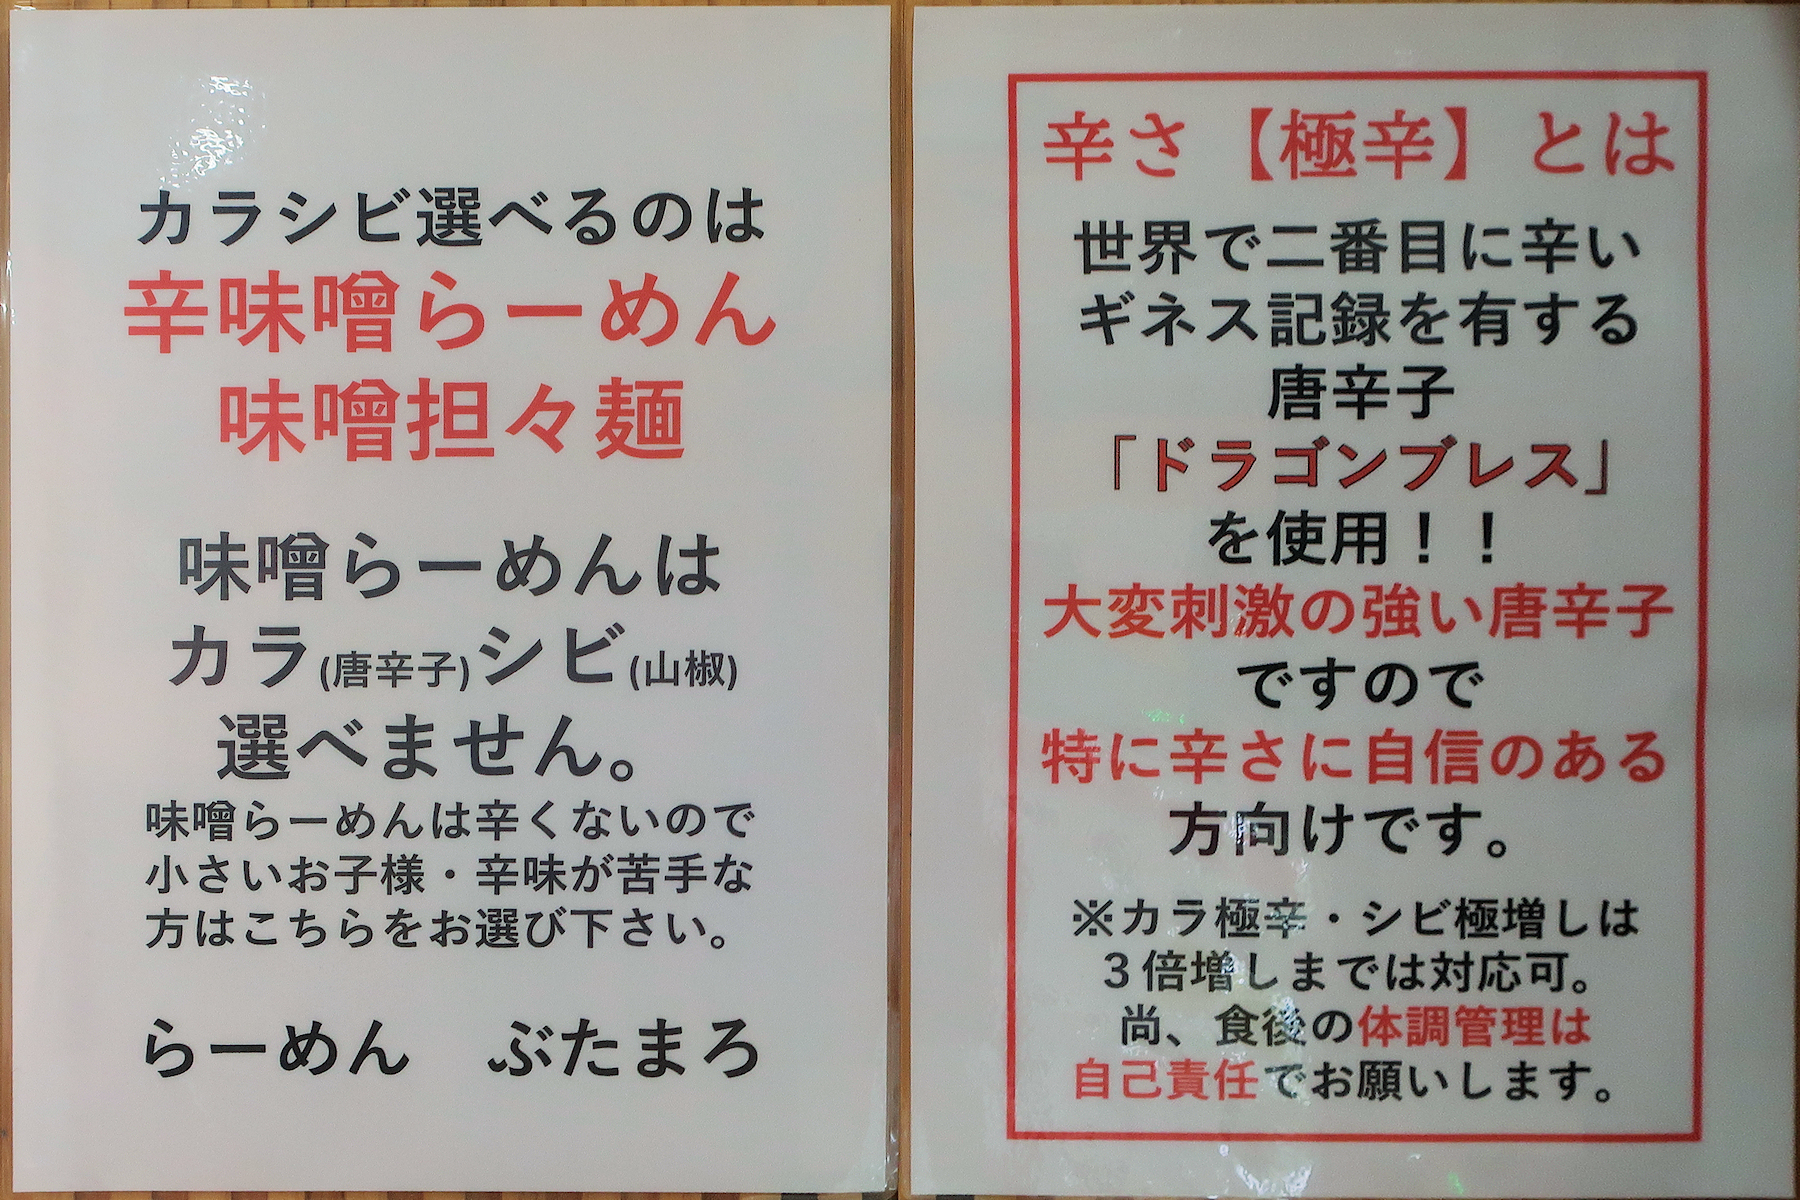 カラシビ選べるのは
辛味噌らーめん
味噌担々麺
味噌らーめんは
カラ(唐辛子)シビ(山椒)
選べません。
味噌らーめんは辛くないので
小さいお子様・辛味が苦手な
方はこちらをお選び下さい。
らーめん　ぶたまろ
辛さ【極辛】とは
世界で二番目に辛い
ギネス記録を有する
唐辛子
「ドラゴンブレス」
を使用！！
大変刺激の強い唐辛子
ですので
特に辛さに自信のある
方向けです。
※カラ極辛・シビ極増しは
３倍増しまでは対応可。
尚、食後の体調管理は
自己責任でお願いします。